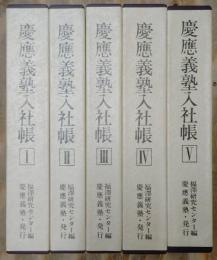 慶應義塾入社帳
I
福澤研究センター編
慶應義塾・発行
慶應義塾入社帳
II
福澤研究センター編
慶應義塾・発行
慶應義塾入社帳
III
福澤研究センター編
慶應義塾・発行
慶應義塾入社帳
IV
福澤研究センター編
慶應義塾・発行
慶應義塾入社帳
V
福澤研究センター編
慶應義塾・発行